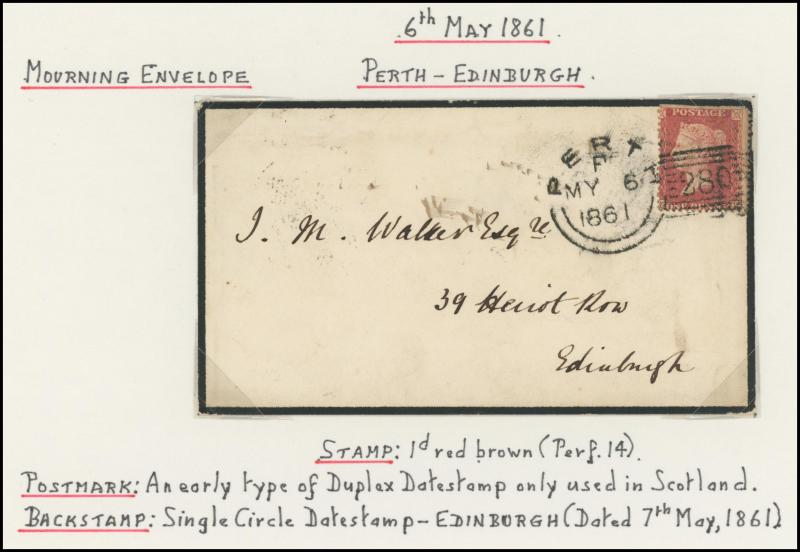 6th MAY 1861.
MOURNING ENVELOPE
PERTH – EDINBURGH.
POSTAGE
PERT
F
MY 6
1861
280
J. M. Walker Esqre
39 Heriot Row
Edinburgh
STAMP: 1d red brown (Perf. 14).
POSTMARK: An early type of Duplex Datestamp only used in Scotland.
BACKSTAMP: Single Circle Datestamp – EDINBURGH (Dated 7th May, 1861)